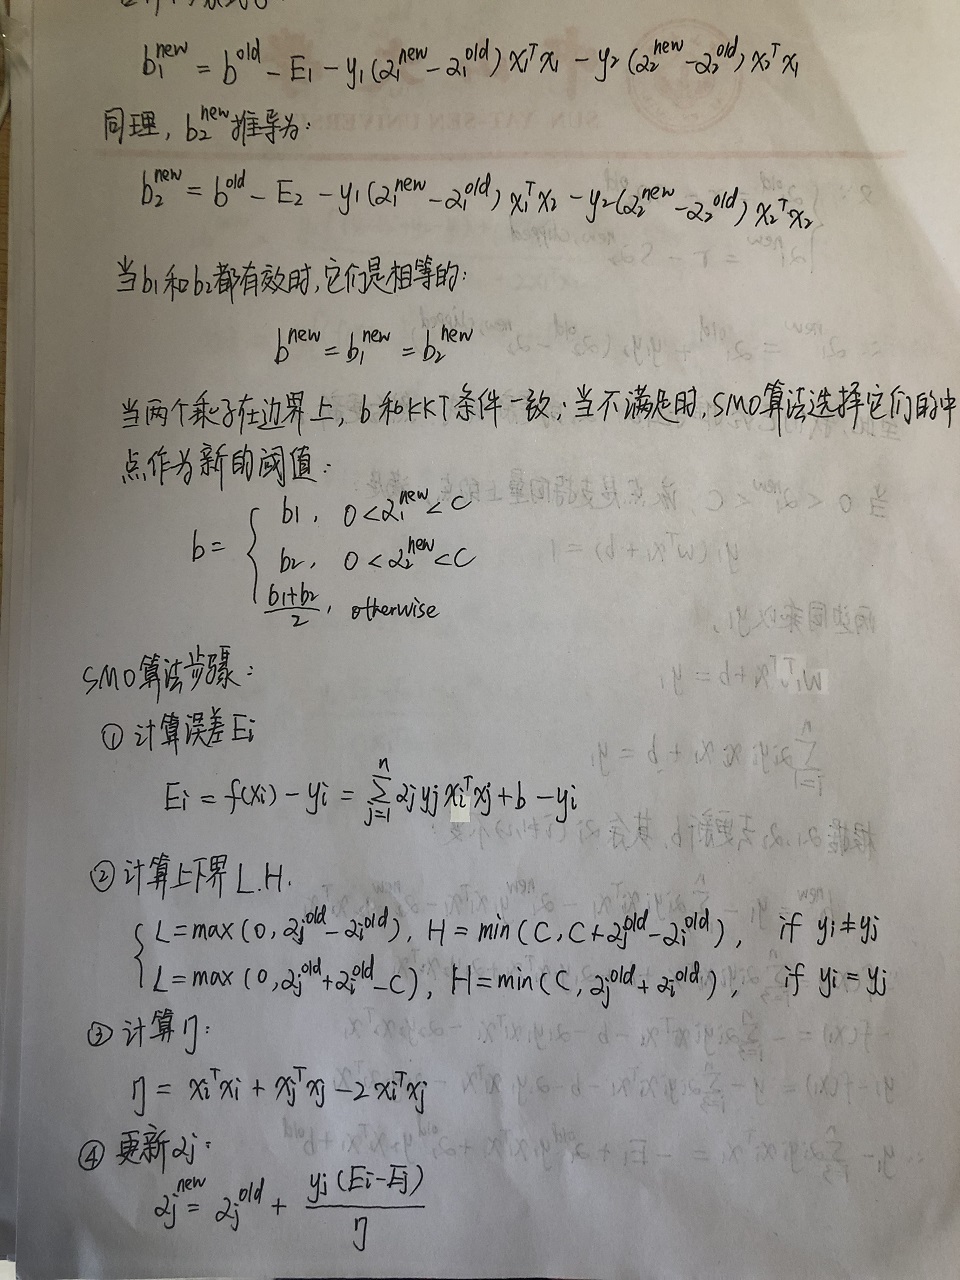 b₁ⁿᵉʷ = bᵒˡᵈ − E₁ − y₁(α₁ⁿᵉʷ − α₁ᵒˡᵈ) x₁ᵀx₁ − y₂(α₂ⁿᵉʷ − α₂ᵒˡᵈ) x₂ᵀx₁
同理, b₂ⁿᵉʷ推导为:
b₂ⁿᵉʷ = bᵒˡᵈ − E₂ − y₁(α₁ⁿᵉʷ − α₁ᵒˡᵈ) x₁ᵀx₂ − y₂(α₂ⁿᵉʷ − α₂ᵒˡᵈ) x₂ᵀx₂
当b₁和b₂都有效时,它们是相等的:
bⁿᵉʷ = b₁ⁿᵉʷ = b₂ⁿᵉʷ
当两个乘子在边界上, b和KKT条件一致;当不满足时,SMO算法选择它们的中
点作为新的阈值:
b = { b₁, 0<α₁ⁿᵉʷ<C
b₂, 0<α₂ⁿᵉʷ<C
(b₁+b₂)/2, otherwise
SMO算法步骤:
① 计算误差Eᵢ
Eᵢ = f(xᵢ) − yᵢ = Σⱼ₌₁ⁿ αⱼyⱼxᵢᵀxⱼ + b − yᵢ
② 计算上下界L.H.
L=max(0, αⱼᵒˡᵈ − αᵢᵒˡᵈ), H = min(C, C+αⱼᵒˡᵈ − αᵢᵒˡᵈ), if yᵢ≠yⱼ
L=max(0, αⱼᵒˡᵈ + αᵢᵒˡᵈ − C), H=min(C, αⱼᵒˡᵈ + αᵢᵒˡᵈ), if yᵢ = yⱼ
③ 计算η:
η = xᵢᵀxᵢ + xⱼᵀxⱼ − 2xᵢᵀxⱼ
④ 更新αⱼ:
αⱼⁿᵉʷ = αⱼᵒˡᵈ + yⱼ(Eᵢ−Eⱼ)/η